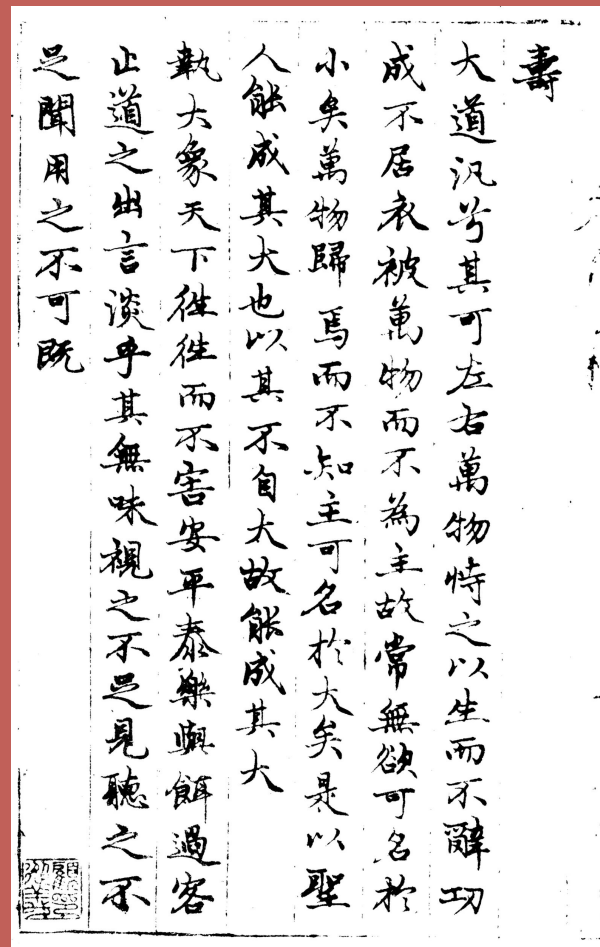 壽
大道汎兮其可左右萬物恃之以生而不辭功
成不居衣被萬物而不為主故常無欲可名於
小矣萬物歸焉而不知主可名於大矣是以聖
人能成其大也以其不自大故能成其大
執大象天下徃徃而不害安平泰樂與餌過客
止道之出言淡乎其無味視之不足見聽之不
足聞用之不可既